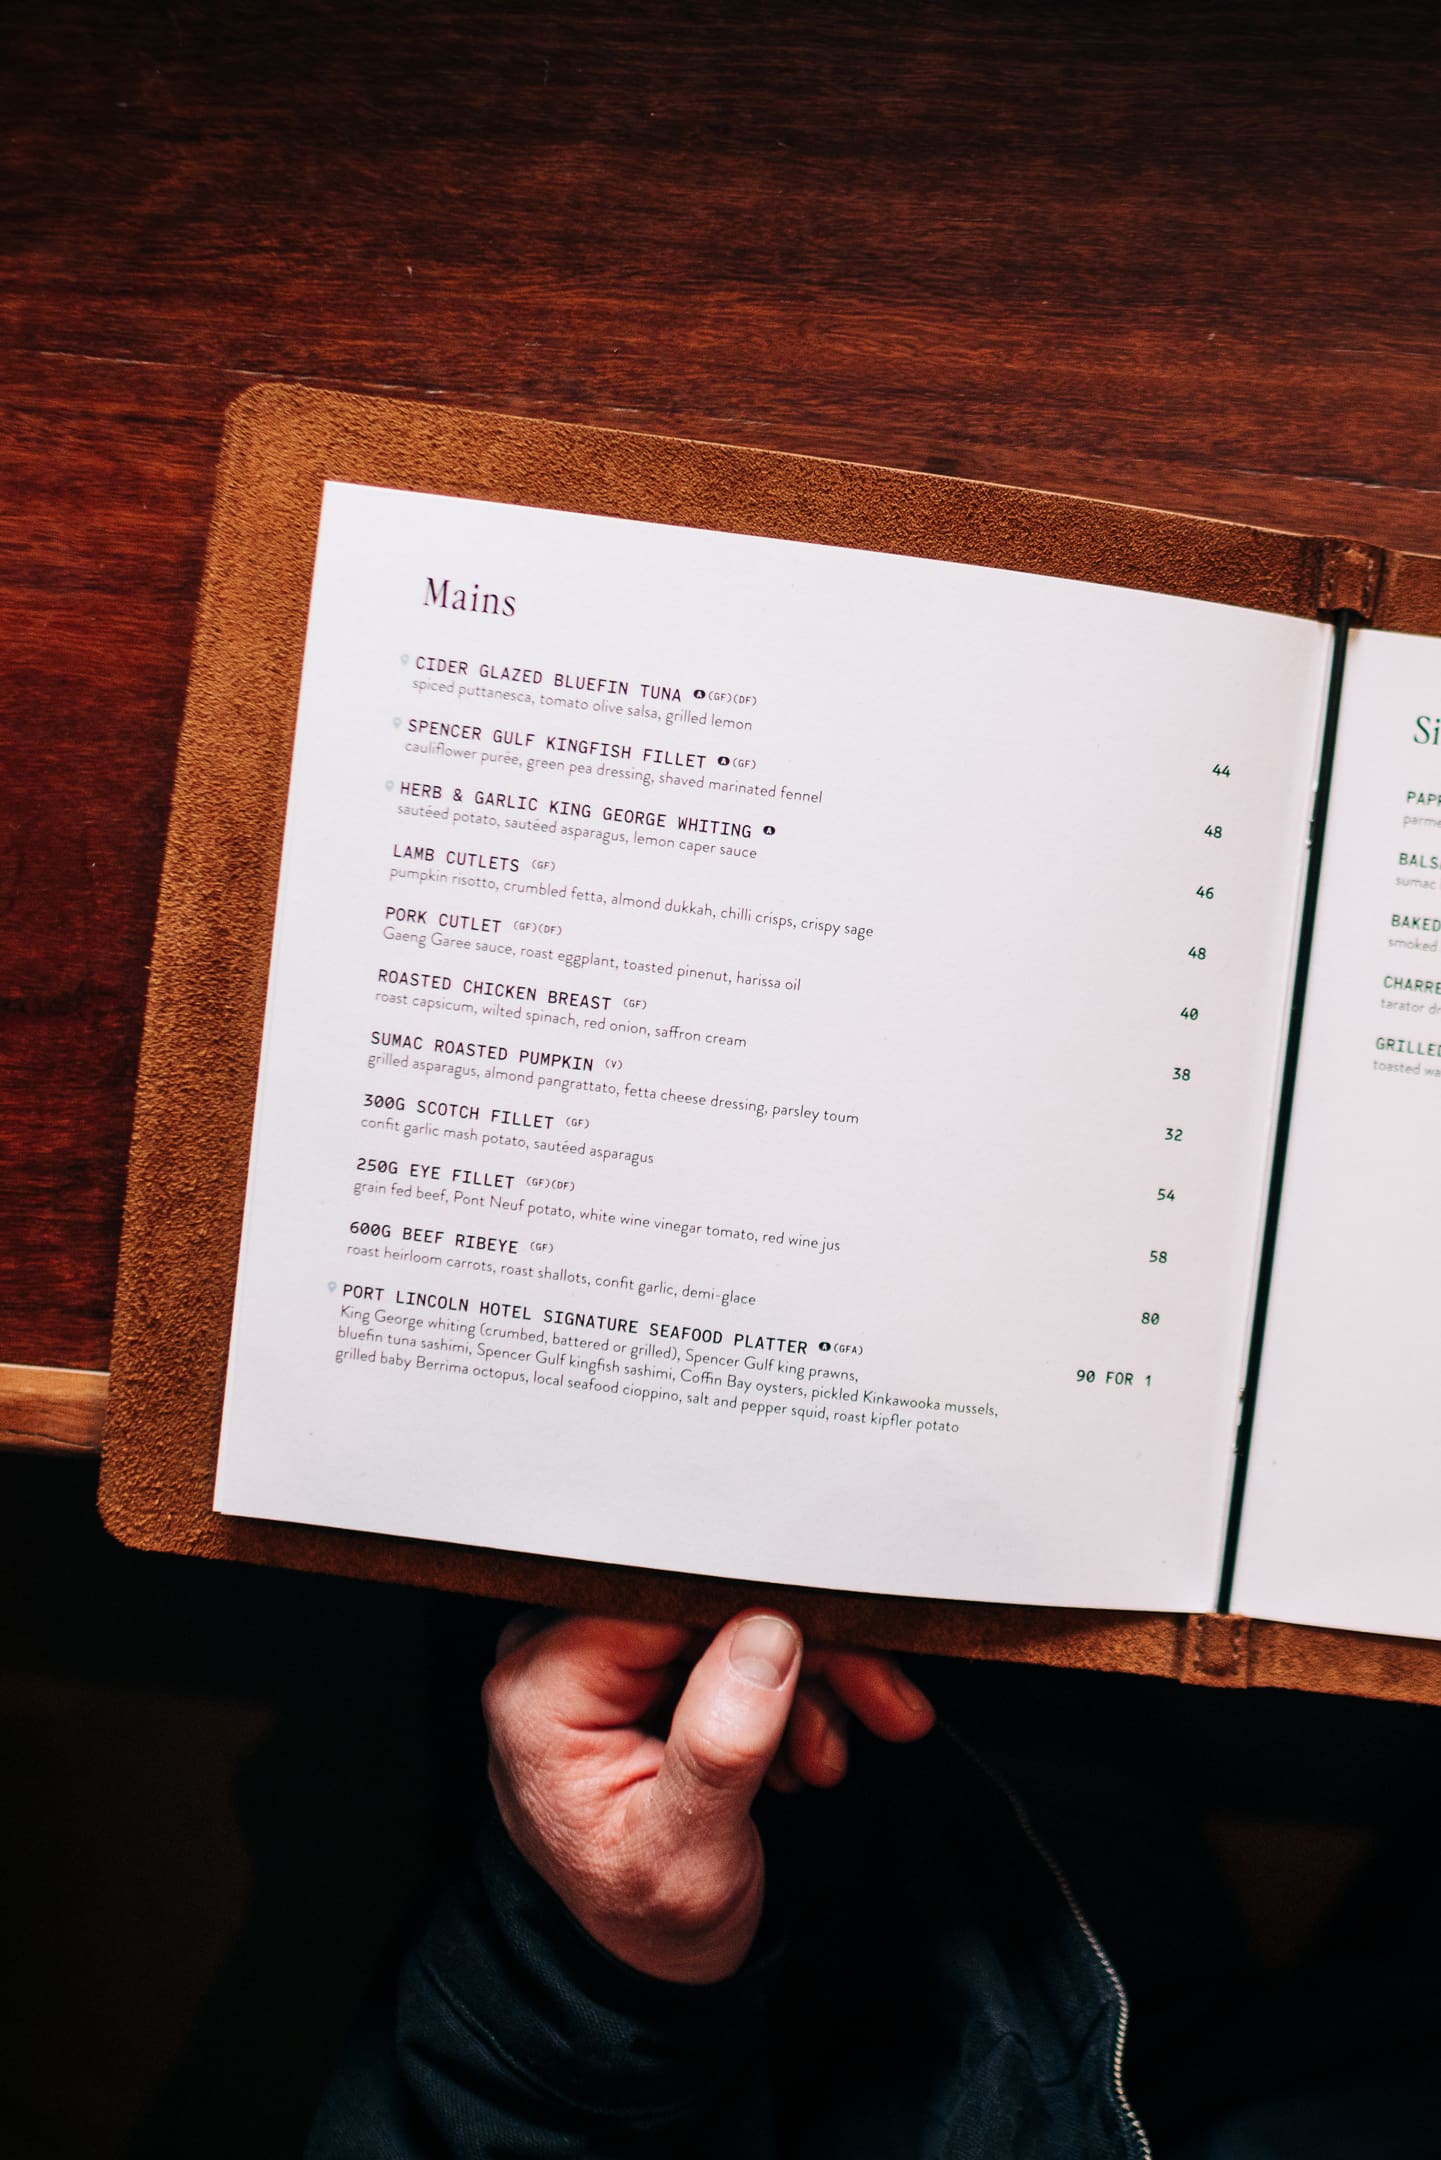 Mains
CIDER GLAZED BLUEFIN TUNA A (GF)(DF) 44
spiced puttanesca, tomato olive salsa, grilled lemon
SPENCER GULF KINGFISH FILLET A (GF) 48
cauliflower purée, green pea dressing, shaved marinated fennel
HERB & GARLIC KING GEORGE WHITING A 46
sautéed potato, sautéed asparagus, lemon caper sauce
LAMB CUTLETS (GF) 48
pumpkin risotto, crumbled fetta, almond dukkah, chilli crisps, crispy sage
PORK CUTLET (GF)(DF) 40
Gaeng Garee sauce, roast eggplant, toasted pinenut, harissa oil
ROASTED CHICKEN BREAST (GF) 38
roast capsicum, wilted spinach, red onion, saffron cream
SUMAC ROASTED PUMPKIN (V) 32
grilled asparagus, almond pangrattato, fetta cheese dressing, parsley toum
300G SCOTCH FILLET (GF) 54
confit garlic mash potato, sautéed asparagus
250G EYE FILLET (GF)(DF) 58
grain fed beef, Pont Neuf potato, white wine vinegar tomato, red wine jus
600G BEEF RIBEYE (GF) 80
roast heirloom carrots, roast shallots, confit garlic, demi-glace
PORT LINCOLN HOTEL SIGNATURE SEAFOOD PLATTER A (GFA) 90 FOR 1
King George whiting (crumbed, battered or grilled), Spencer Gulf king prawns,
bluefin tuna sashimi, Spencer Gulf kingfish sashimi, Coffin Bay oysters, pickled Kinkawooka mussels,
grilled baby Berrima octopus, local seafood cioppino, salt and pepper squid, roast kipfler potato
Si
PAPR
parme
BALS
sumac
BAKED
smoked
CHARRE
tarator dr
GRILLED
toasted wa